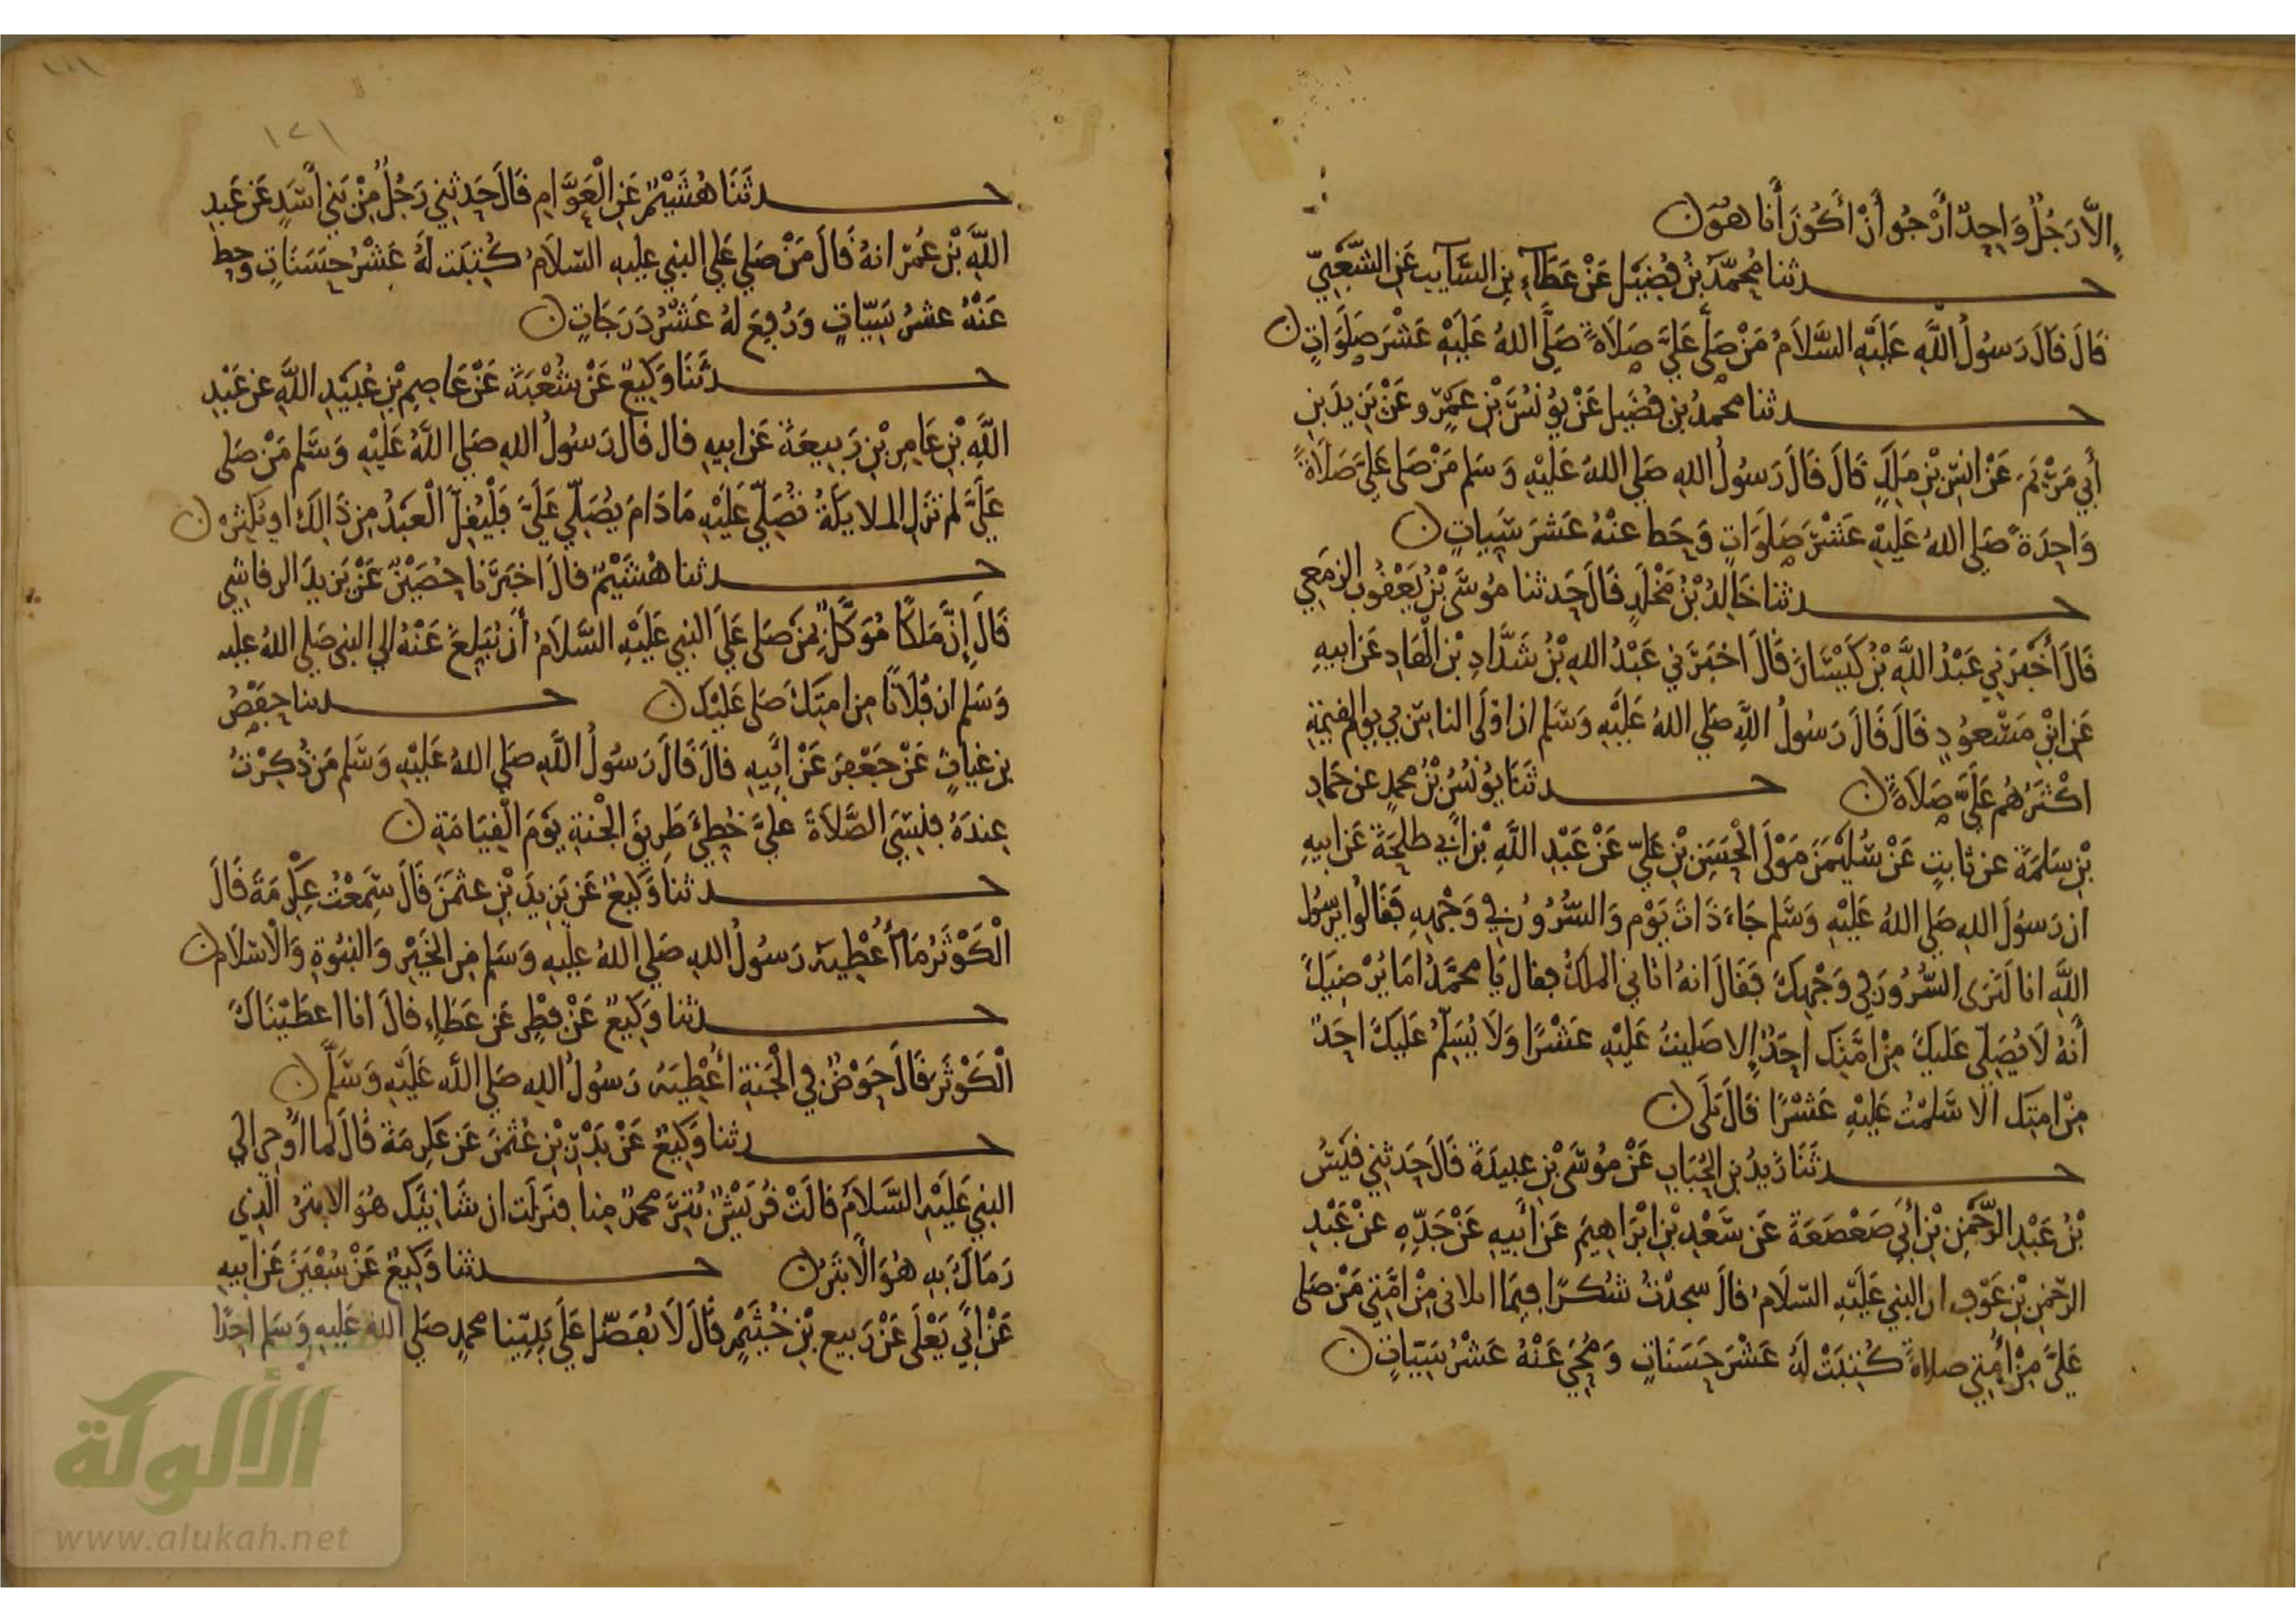 إلّا رَجُلٌ وَاحِدٌ أَرْجُو أَنْ أَكُونَ أَنَا هُوَ ن
حدثنا مُحمَّدُ بْنُ فُضَيْل عَنْ عَطَآءِ بنِ السَّآيب عَنِ الشَّعْبِيّ
قَالَ قَالَ رَسُولُ اللَّهِ عَلَيْهِ السَّلَامُ مَنْ صَلَّى عَلَيَّ صَلَاةً صَلَّى اللهُ عَلَيْهِ عَشْرَ صَلَوَاتٍ ن
حدثنا محمدُ بن فُضَيل عَنْ يُونُسَ بْنِ عَمْرٍو عَنْ يَزِيدَ بنِ
أَبِي مَرْيَمَ عَنْ انَسِ بْنِ مَلِكٍ قَالَ قَالَ رَسُولُ اللهِ صَلى اللهُ عَلَيْهِ وَسَلم مَنْ صَلى عَلَيَّ صَلَاةً
وَاحِدَةً صَلى اللهُ عَلَيْهِ عَشْرَ صَلَوَاتٍ وَحَط عَنْهُ عَشرَ سَيّياتٍ ن
حدثنا خَالِدُ بْنُ مَخْلَدٍ قَالَ حَدثنا مُوسَى بْنُ يَعْقُوبَ الزمَعِي
قَالَ أَخْبَرَنِي عَبْدُ اللَّهِ بْنُ كَيْسَانَ قَالَ اخبَرَني عَبْدُ اللهِ بْنُ شَدَّادِ بْنِ الْهَادِ عَن ابيهِ
عَنِ ابْنِ مَسْعُودٍ قَالَ قَالَ رَسُولُ اللَّهِ صَلى اللهُ عَلَيْهِ وَسَلم ان اوْلَى الناسِ بي يوم القيمَةِ
اكْثَرُهُم عَلَيَّ صَلَاةً ن حدثَنَا يُونُسُ بْنُ محمدٍ عن حَمادِ
بْنِ سَلَمَةَ عن ثابتٍ عَنْ سُليْمَنَ مَوْلَى الْحَسَنِ بْنِ عَلِيّ عَنْ عَبْدِ اللَّهِ بْنِ أبي طلحَةَ عَن ابيهِ
ان رَسُولَ اللهِ صَلى اللهُ عَلَيْهِ وَسَلم جَاءَ ذَاتَ يَوْم وَالسُّرُورُ في وَجْهِهِ فقَالُوا يرسُولَ
اللَّهِ انا لَنَرَى السُّرُورَ في وَجْهِكَ فَقَالَ انهُ اتاني الملَكُ فقال يَا محمَّدُ امَا يُرْضِيكَ
أَنهُ لَا يُصَلّي عَلَيكَ مِنْ امَّتِكَ احَدٌ إلا صَليتُ عَلَيْهِ عَشْرًا وَلَا يُسَلِّمُ عَلَيْكَ احَدٌ
مِنْ امتِكَ الا سَلمْتُ عَلَيْهِ عَشْرًا قَالَ بَلَى ن
حدثَنَا زيدُ بن الحُبَابِ عَنْ مُوسَى بْنِ عبيدَةَ قَالَ حَدثني قيسُ
بْنُ عَبْدِ الرَّحْمنِ بْنِ أَبِي صَعْصَعَةَ عَن سَعْدِ بْنِ ابْرَاهِيمَ عَن أَبيهِ عَنْ جَدِّهِ عَنْ عَبْدِ
الرّحْمنِ بْنِ عَوْفٍ ان النبي عَلَيْهِ السّلَامُ قالَ سجدْتُ شُكرًا فِيمَا ابلاني مِنْ امَّتِي مَنْ صَلى
عَلَيَّ مِنْ أُمتِي صلاةً كُتبَتْ لَهُ عَشْرَ حَسَنَاتٍ وَمُحِيَ عَنْهُ عَشْرُ سَيّيَاتٍ ن
١٢١
حدثَنَا هُشَيْمٌ عَنِ الْعَوَّامِ قَالَ حَدثني رَجُلٌ مِنْ بَنِي أَسَدٍ عَنْ عَبْدِ
اللَّهِ بْنِ عُمَر انهُ قَالَ مَنْ صَلى عَلَى النبي عَلَيهِ السّلَامُ كُتِبَت لَهُ عَشْرُ حَسَنَاتٍ وَحط
عَنْهُ عشرُ سَيّيَاتٍ وَرُفِعَ لهُ عَشْرُ دَرَجَاتٍ ن
حدثَنَا وَكِيعٌ عَنْ شُعْبَةَ عَنْ عَاصِمِ بْنِ عُبَيْدِ اللَّهِ عن عَبْدِ
اللَّهِ بْنِ عَامِرِ بْنِ رَبِيعَةَ عَن ابيهِ قال قالَ رَسُولُ اللهِ صَلى اللَّهُ عَلَيْهِ وَسَلم مَنْ صَلى
عَلَيَّ لَم تَزَلِ الملايكَةُ تُصَلّي عَلَيْهِ مَا دَامَ يُصَلّي عَلَيَّ فَلْيُقِلَّ الْعَبْدُ مِن ذَالِكَ او يُكثِرْ ن
حدثنا هُشَيْمٌ قالَ اخبَرَنا حُصَيْنٌ عَنْ يَزيدَ الرقاشي
قَالَ إِنَّ مَلَكًا مُوَكَّلٌ بمَن صَلى عَلَى النبي عَلَيْهِ السَّلَامُ أَن يُبَلِغَ عَنْهُ إلي النبي صَلى اللهُ عليه
وَسَلم ان فُلَانًا مِن امتِكَ صَلى عَلَيْكَ ن حدثنا حفْصُ
بن غِيَاثٍ عَنْ جَعْفَرَ عَنْ أَبِيهِ قالَ قَالَ رَسُولُ اللَّهِ صَلى اللهُ عَلَيْهِ وَسَلم مَن ذُكِرْتُ
عِندَهُ فنَسِيَ الصَّلَاةَ عَلَيَّ خُطِئَ طَرِيقَ الْجنةِ يَوْمَ الْقِيَامَةِ ن
حدثنا وَكِيعٌ عَن يَزيدَ بْنِ عثمَنَ قَالَ سَمِعْتُ عِكْرِمَةَ قَالَ
الْكَوْثَرُ مَا أُعْطِيَهُ رَسُولُ اللهِ صَلى اللهُ عَلَيهِ وَسَلم مِن الخَيْرِ وَالنبُوةِ وَالْاسْلَامِ ن
حدثنا وَكِيعٌ عَنْ فِطْرٍ عَن عَطَاءٍ قالَ انا اعطَيْنَاكَ
الْكَوْثَرَ قَالَ حَوْضٌ في الْجَنةِ أُعْطِيَهُ رَسُولُ اللهِ صَلى اللَّهُ عَلَيْهِ وَسَلَّمَ ن
حدثنا وَكِيعٌ عَنْ بَدْرِ بْنِ عُثمَنَ عَن عكرِمَةَ قَالَ لما أُوحِيَ الي
النبي عَلَيْهِ السَّلَامَ قالَتْ قُرَيْشٌ بُتِرَ محمدٌ مِنا فنَزَلَت ان شَانِيَكَ هُوَ الابتَرُ الَّذِي
رَمَاكَ بِهِ هُوَ الْأَبْتَرُ ن حدثنا وَكِيعٌ عَنْ سُفْيَنَ عَن ابيهِ
عَنْ أَبي يَعْلَى عَنْ رَبيع بْنِ خُثَيْمٍ قَالَ لَا نُفَضّل عَلَى نَبِيّنا محمدٍ صَلى اللهُ عَلَيهِ وَسَلم احَدًا
الألوكة
www.alukah.net